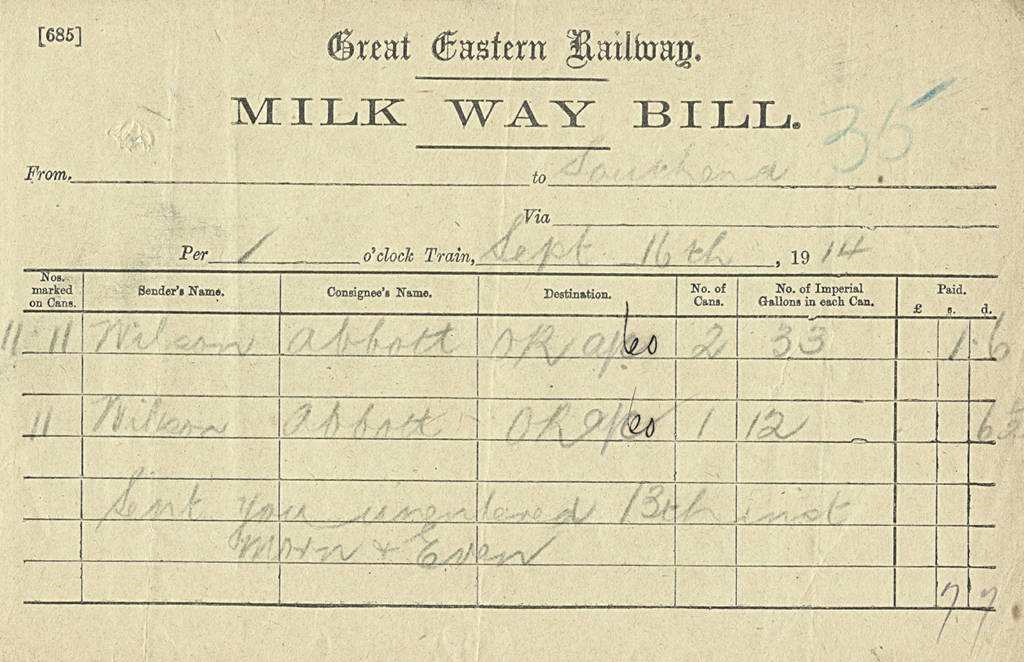 [685]
Great Eastern Railway.
MILK WAY BILL. 35
From. to Southend
Via
Per 1 o'clock Train, Sept 16th, 1914
Nos. marked on Cans. Sender's Name. Consignee's Name. Destination. No. of Cans. No. of Imperial Gallons in each Can. Paid. £ s. d.
11 11 Wilson Abbott OR 2 33 1 6
11 Wilson Abbott OR 1 12 6½
Sent you unentered 13th inst
Morn & Even
7 7